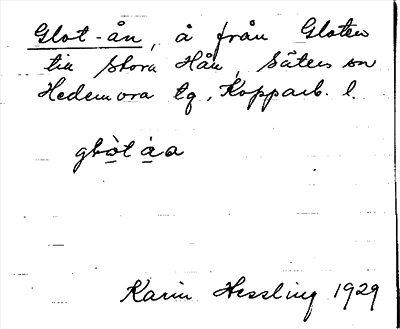 Glot-ån, å från Gloten
till Stora Hån, Säters sn
Hedemora tg, Kopparb. l.
glòt åa
Karin Hessling 1929